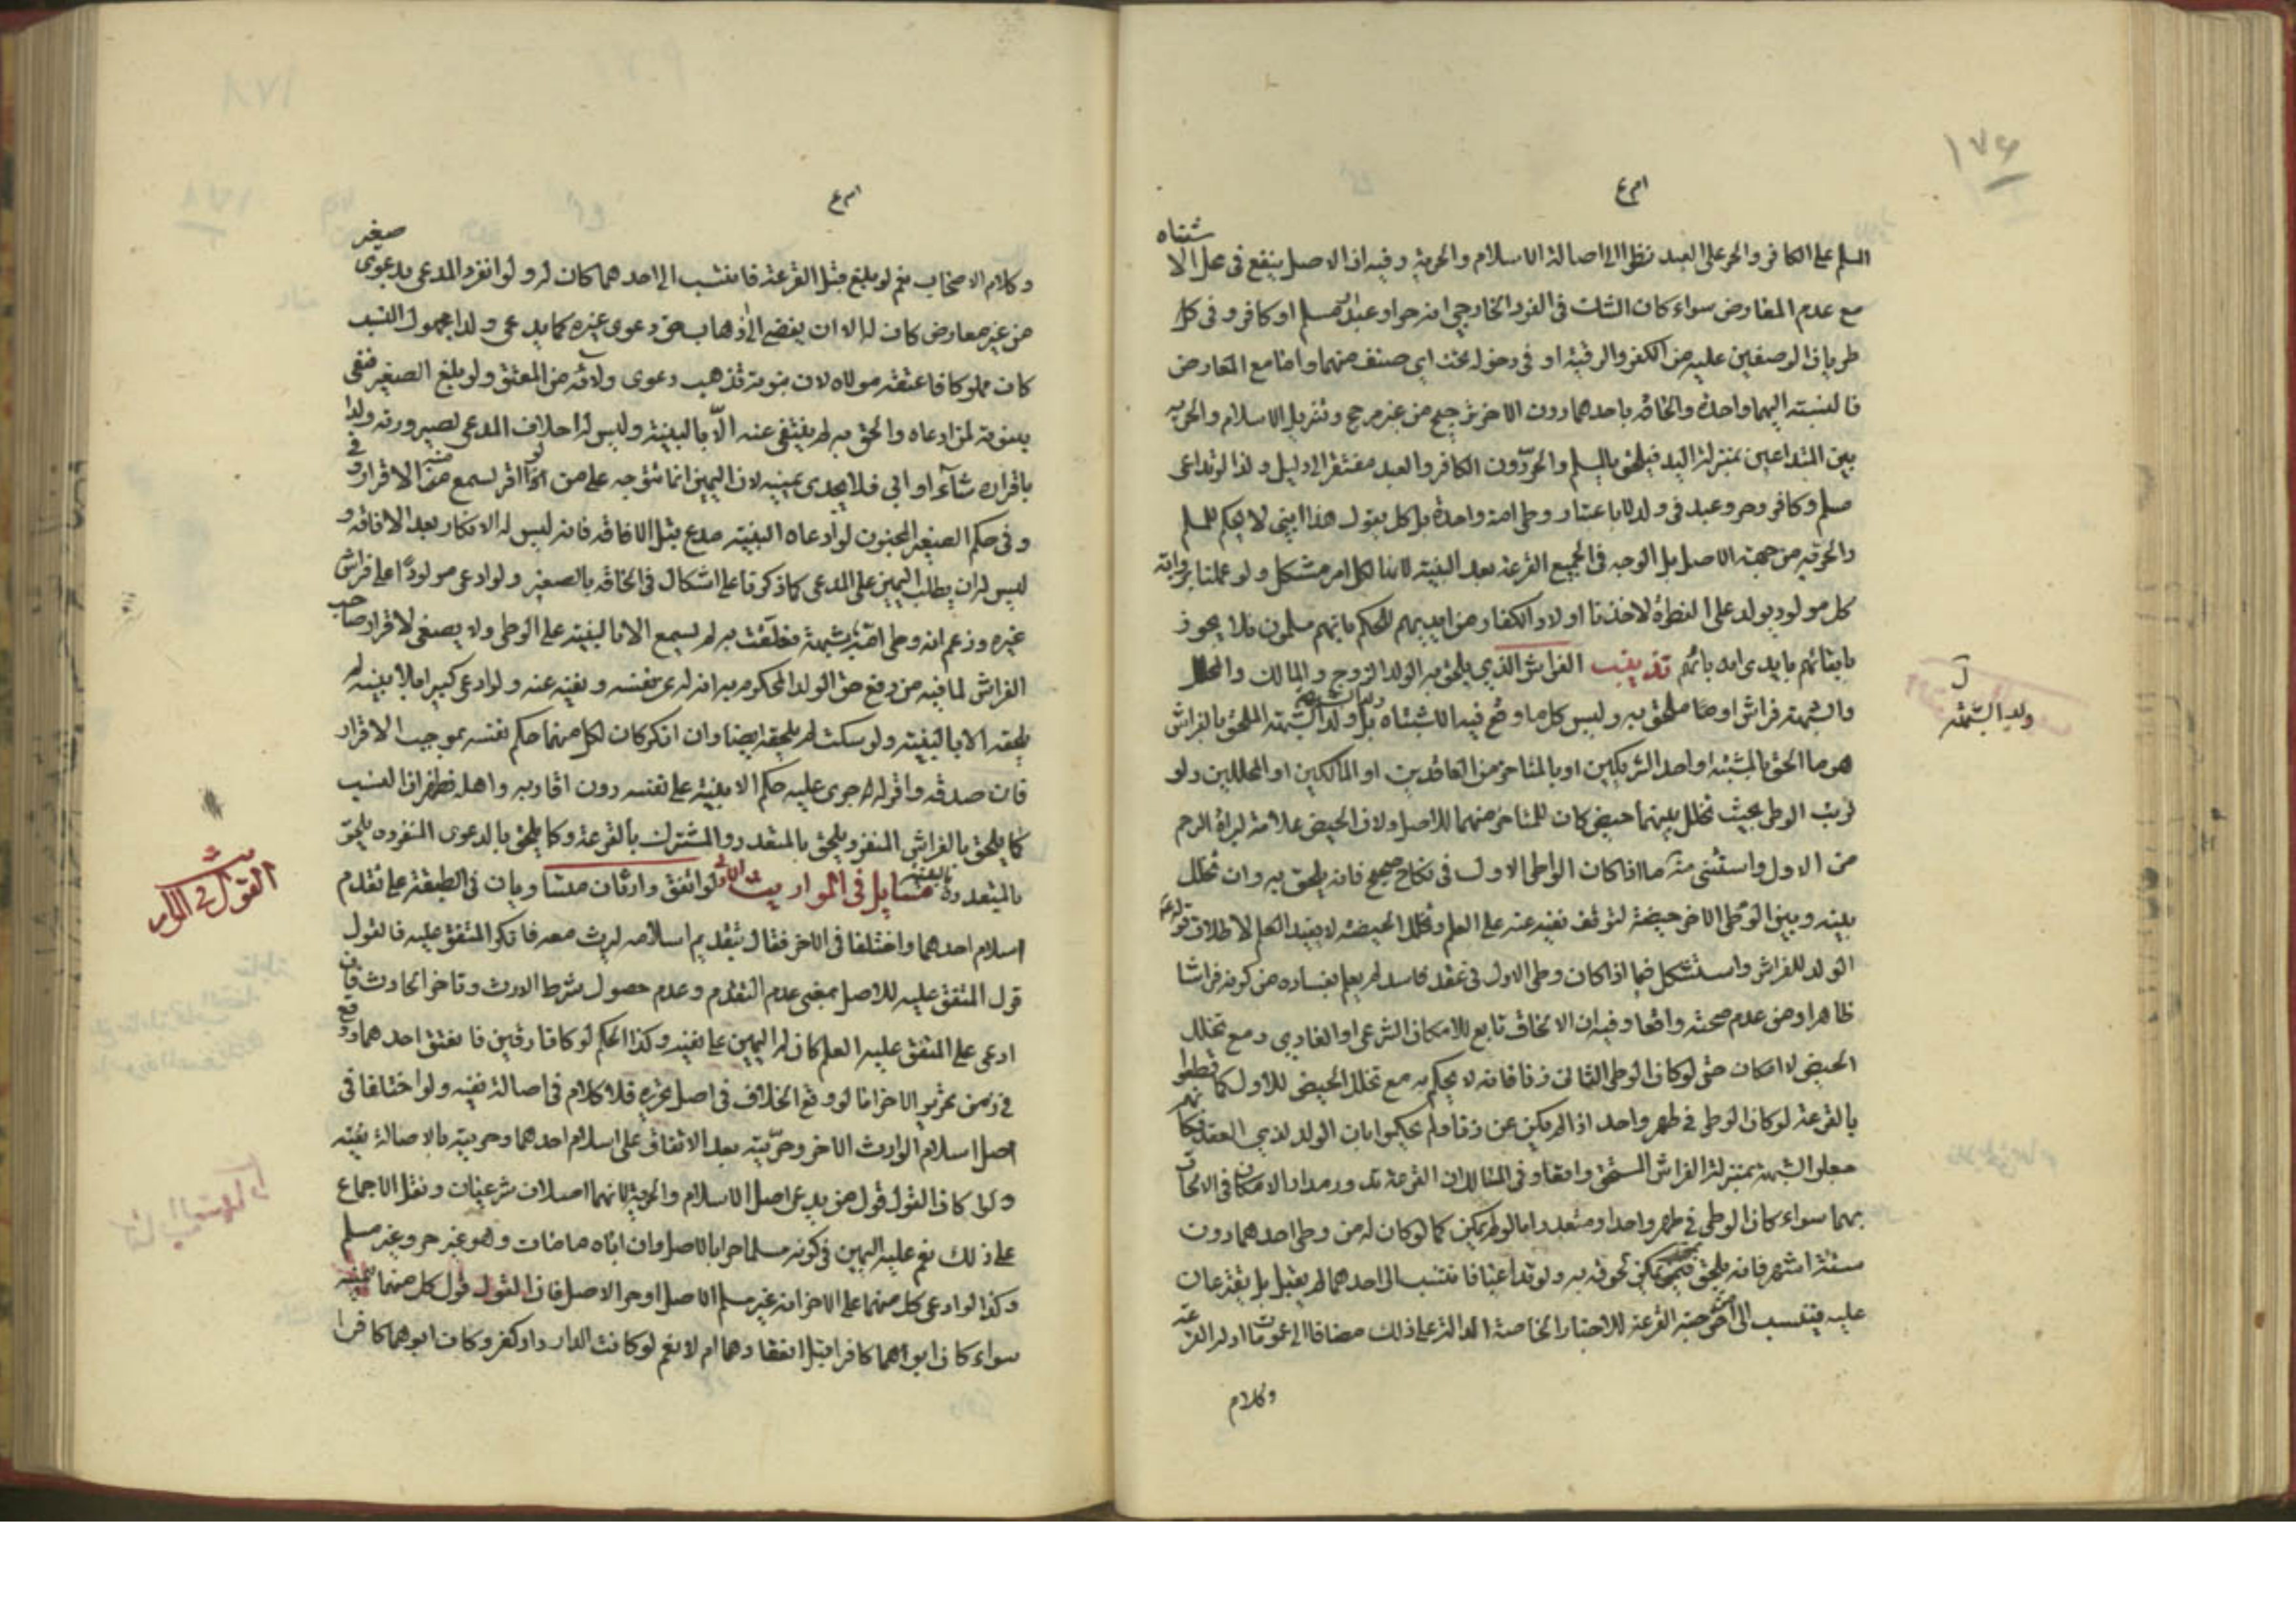 ١٧٦
المسلم على الكافر والحر على العبد نظرا الى اصالة الاسلام والحرية وفيه ان الاصل ينفع في محل الاشتباه
مع عدم المعارض سواء كان الشك في الفرد الخارجي انه حر او عبد مسلم او كافر وفي كل
طريان الوصفين عليه من الكفر والرقية او في دخوله تحت اي صنف منهما واما مع التعارض
فالنسبة اليهما واحدة والحاقه باحدهما دون الاخر ترجيح من غير مرجح وتنزيل الاسلام والحرية
بين المتداعيين بمنزلة اليد فيلحق بالمسلم والحر دون الكافر والعبد مفتقر الى دليل ولذا لو تداعى
مسلم وكافر وحر وعبد في ولد لا باعتبار وطي امة واحدة بل كل يقول هذا ابني لا يحكم للمسلم
والحر به من جهة الاصل بل الوجه في الجميع القرعة بعد البينة لانها لكل امر مشكل ولو عملنا برواية
كل مولود يولد على الفطرة لاخذنا اولاد الكفار من ايديهم للحكم بانهم مسلمون فلا يجوز
بابقائهم بايدي آبائهم تذنيب الفراش الذي يلحق به الولد الزوج والمالك والمحلل
والشبهة فراش اوصا ملحق به وليس كل ما وقع فيه الاشتباه بل ولد الشبهة الملحق بالفراش
هو ما الحق بالمشتبه او احد الشريكين او بالمتاخر من العاقدين او المالكين او المحللين ولو
ترتب الوطي بحيث تخلل بينهما حيض كان للمتاخر منهما للاصل ولان الحيض علامة لبراءة الرحم
من الاول واستثنى منه ما اذا كان الواطي الاول في نكاح صحيح فانه يلحق به وان تخلل
بينه وبين الوطي الاخر حيضة لتوقف نفيه عنه على العلم وتخلل الحيضة لا يفيد العلم لاطلاق قوله ع
الولد للفراش واستشكل فيما اذا كان وطي الاول في عقد فاسد لم يعلم بفساده من كونه فراشا
ظاهرا ومن عدم صحته واقعا وفيه ان الالحاق تابع للامكان الشرعي او العادي ومع تخلل
الحيض لا امكان حتى لو كان الوطي الثاني زنا فانه لا يحكم به مع تخلل الحيض للاول كما تطلبوا
بالقرعة لو كان الوطي في طهر واحد اذا لم يكن عن زنا ولم يحكموا بان الولد لذي العقد فكانهم
جعلوا الشبهة بمنزلة الفراش المستحق واقعا وفي المسالك ان القرعة تدور مدار الامكان في الالحاق
بهما سواء كان الوطي في طهر واحد او متعدد اما لو لم يمكن كما لو كان له من وطي احدهما دون
ستة اشهر فانه يلحق بمن يمكن لحوقه به ولو تداعيا فانتسب الى احدهما لم يقبل بل يقترعان
عليه فينتسب الى من اخرجته القرعة للاخبار الخاصة الدالة على ذلك مضافا الى عمومات ادلة القرعة
وكلام
ل
ولد الشبهة
وكلام الاصحاب نعم لو بلغ قبل القرعة فانتسب الى احدهما كان له ولو انفرد المدعي بدعوى صغير
من غير معارض كان له الا ان يفضي الى ذهاب حق دعوى غيره كما يدعي ولدا مجهول النسب
كان مملوكا فاعتقه مولاه لان بنوته تذهب دعوى ولائه من المعتق ولو بلغ الصغير فنفى
بنوته لمن ادعاه والحق به لم ينتفي عنه الا بالبينة وليس له احلاف المدعي لصيرورته ولدا
باقراره شاء او ابى فلا يجدي يمينه لان اليمين انما تتوجه على من لو اقر لسمع منه الاقرار و
في حكم الصغير المجنون لو ادعاه البينة مدع قبل الافاقة فانه ليس له الانكار بعد الافاقة و
ليس له ان يطلب اليمين على المدعي كما ذكرنا على اشكال في الحاقه بالصغير ولو ادعى مولودا على فراش
غيره وزعم انه وطي امة بشبهة فعلقت به لم يسمع الا بالبينة على الوطي ولا يصغى لاقرار صاحب
الفراش لما فيه من دفع حق الولد المحكوم به انه له عن نفسه ونفيه عنه ولو ادعى كبيرا بلا بينة لم
يلحقه الا بالبينة ولو سكت لم يلحقه ايضا وان انكر كان لكل منهما حكم نفسه بموجب الاقرار
فان صدقه واقر له جرى عليه حكم الابنية على نفسه دون اقاربه واهله فظهر ان النسب
كما يلحق بالفراش المنفرد يلحق بالمتعدد والمشترك بالقرعة وكما يلحق بالدعوى المنفردة يلحق
بالمتعددة بالبينة مسايل في المواريث الاولى لو اتفق وارثان متساويان في الطبقة على تقدم
اسلام احدهما واختلفا في الاخر فقال بتقديم اسلامه ليرث معه فانكر المتفق عليه فالقول
قول المتفق عليه للاصل بمعنى عدم التقدم وعدم حصول شرط الارث وتاخر الحادث فان
ادعى على المتفق عليه العلم كان له اليمين على نفيه وكذا الحكم لو كانا رقين فانعتق احدهما ووقع
في زمن تحرير الاخر اما لو وقع الخلاف في اصل تحريره فلا كلام في اصالة نفيه ولو اختلفا في
اصل اسلام الوارث الاخر وحريته بعد الاتفاق على اسلام احدهما وحريته بالاصالة بقيته
ولو كان القول قول من يدعي اصل الاسلام والحرية لانهما اصلان شرعيان ونقل الاجماع
على ذلك نعم عليه اليمين في كونه مسلما حرا بالاصل وان اباه ما مات وهو غير حر وغير مسلم
وكذا لو ادعى كل منهما على الاخر انه غير مسلم الاصل او حر الاصل فان القول قول كل منهما بيمينه
سواء كان ابواهما كافرا قبل انعقادهما ام لا نعم لو كانت الدار دار كفر وكان ابوهما كافرا